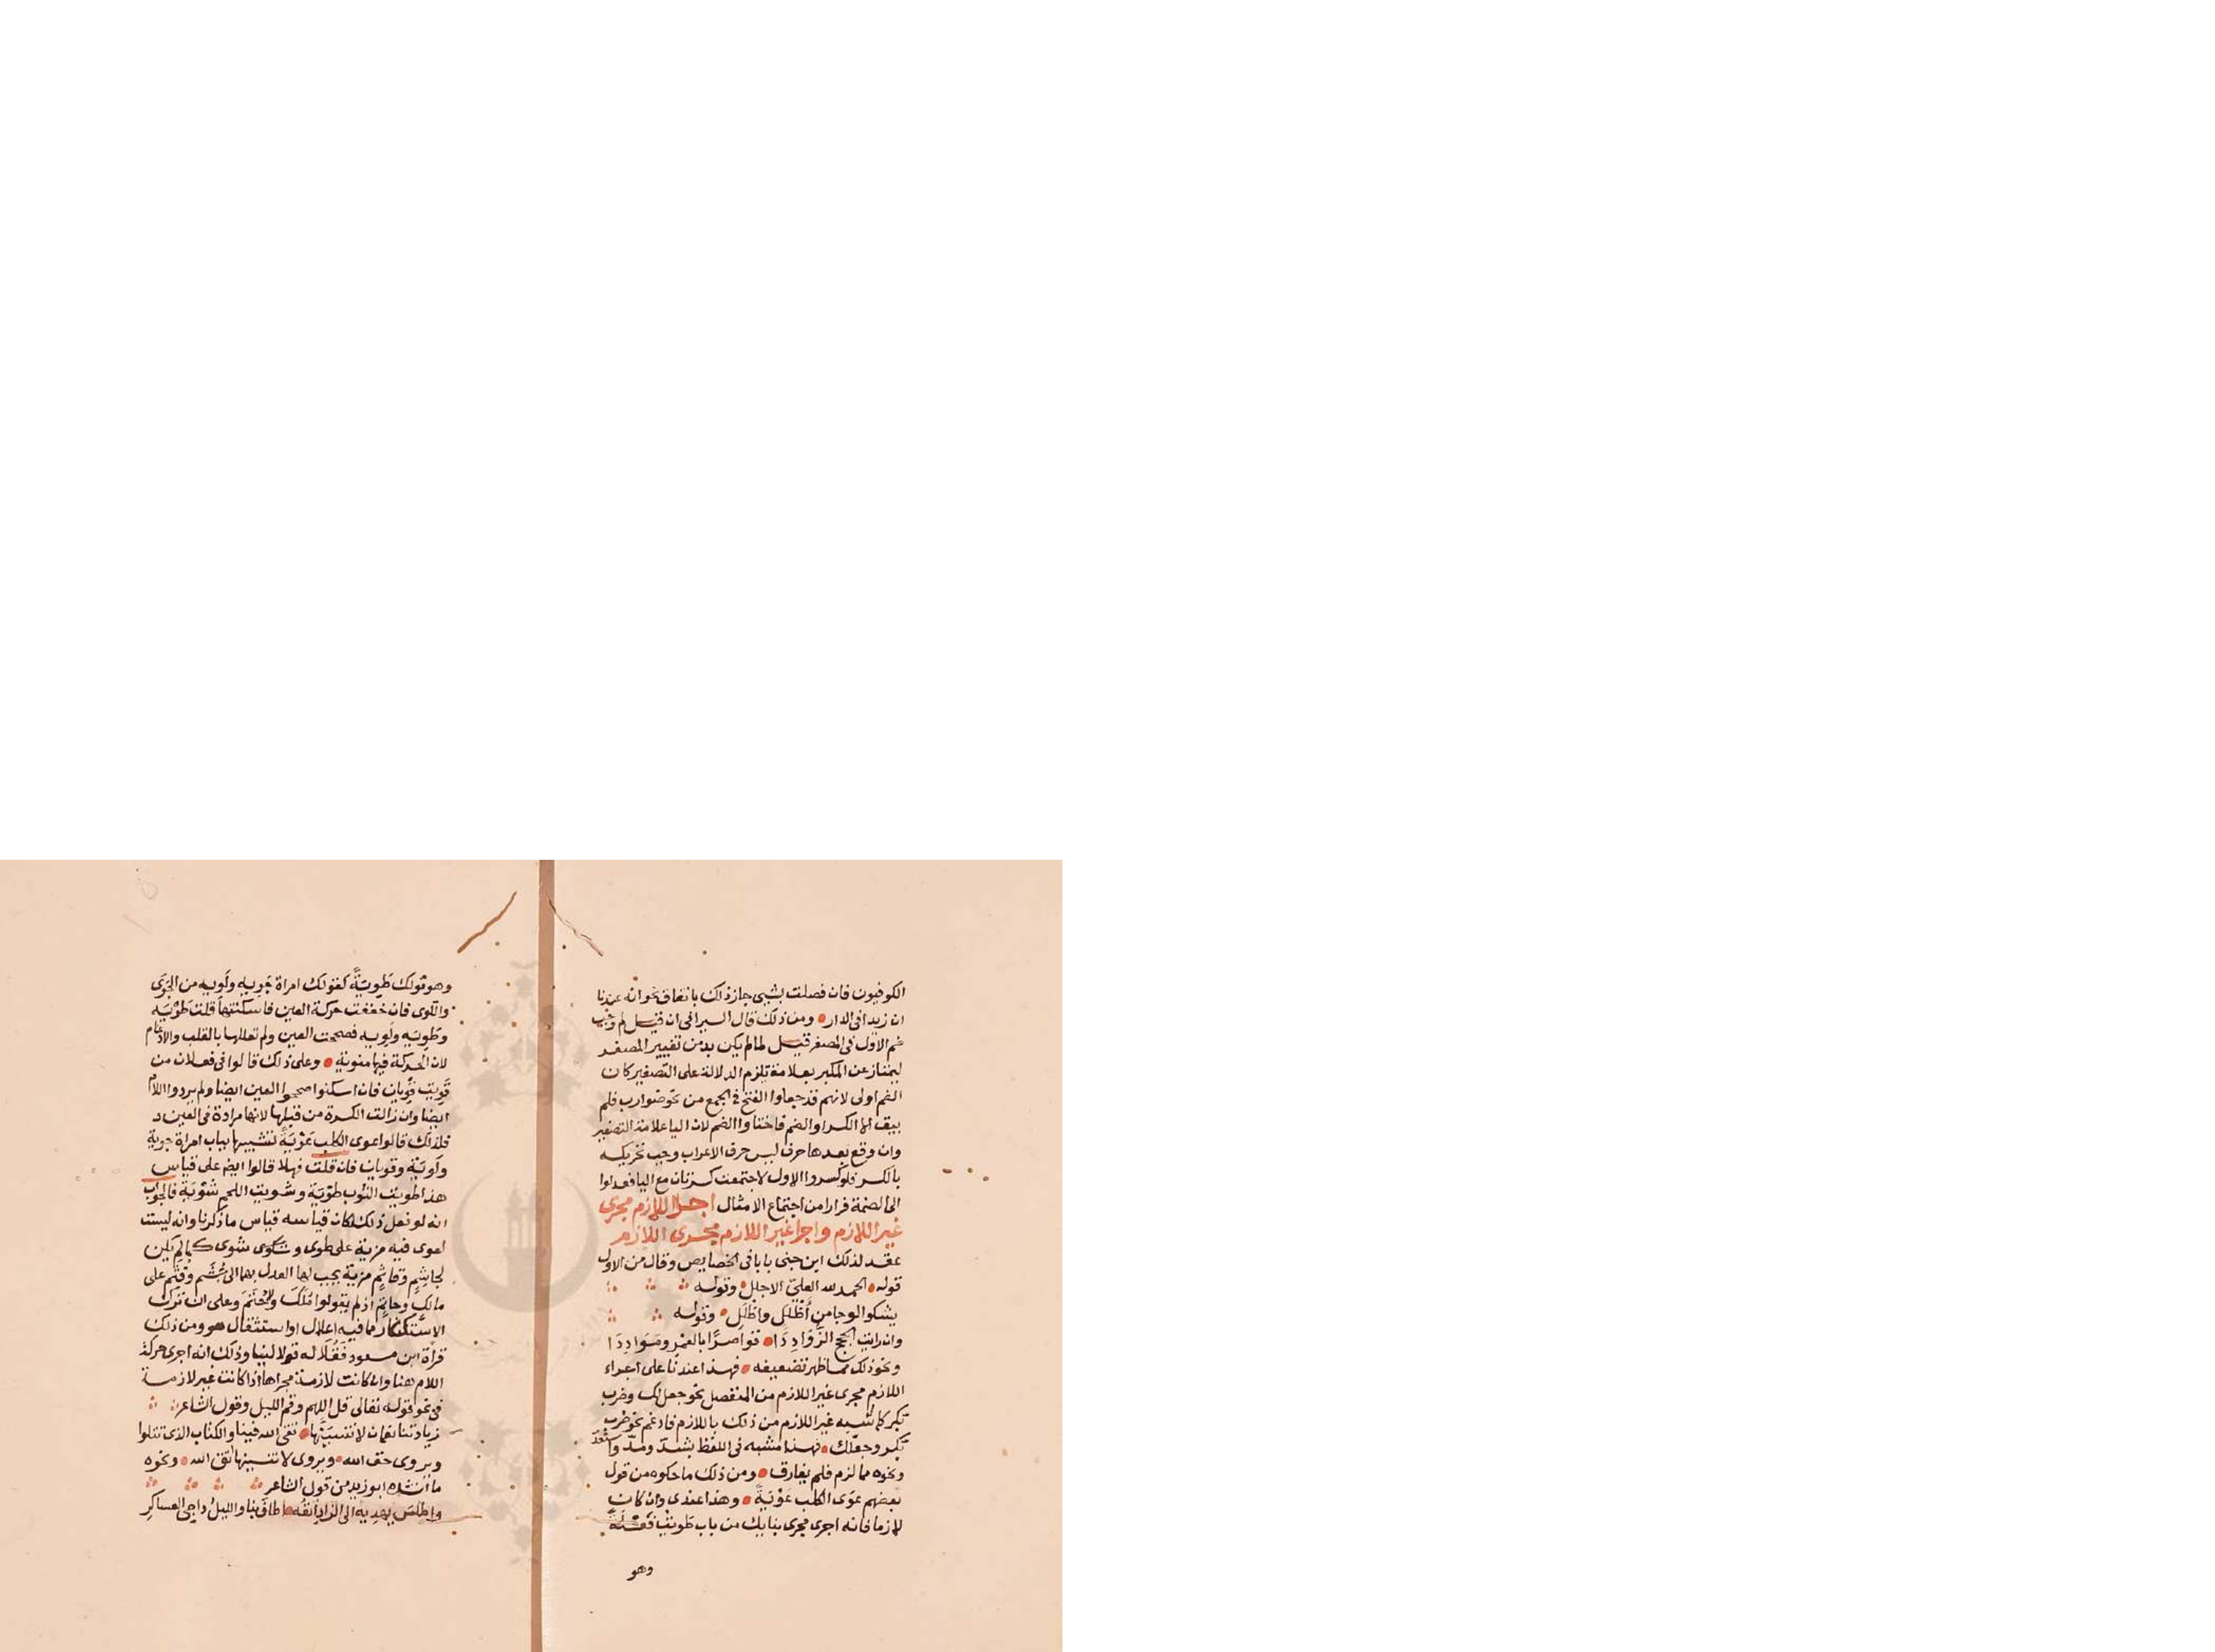 الكوفيون فان فصلت بشيى جاز ذلك باتفاق نحو انه عندنا
ان زيدا فى الدار ومن ذلك قال السيرافى ان قيل لم وجب
ضم الاول فى المصغر قيل لما لم يكن بد من تغيير المصغر
ليمتاز عن المكبر بعلامة تلزم الدلالة على التصغير كان
الضم اولى لانهم قد جعلوا الفتح فى الجمع من نحو ضوارب فلم
يبق الا الكسر او الضم فاختاروا الضم لان اليا علامة التصغير
وان وقع بعدها حرف ليس حرف الاعراب وجب تحريكه
بالكسر فلو كسروا الاول لاجتمعت كسرتان مع اليا فعدلوا
الى الضمة فرارا من اجتماع الامثال اجرا اللازم مجرى
غير اللازم واجرا غير اللازم مجرى اللازم
عقد لذلك ابن جنى بابا فى الخصايص وقال من الاول
قوله الحمد لله العلى الاجلل وقوله
يشكوا الوجا من أظلل واظلل وقوله
وان رايت الحجج الرواددا قواصرا بالعمر ومواددا
ونحو ذلك مما ظهر تضعيفه فهذا عندنا على اجراء
اللازم مجرى غير اللازم من المنفصل نحو جعل لك وضرب
بكر كما شبه غير اللازم من ذلك باللازم فادغم نحو ضرب
بكر وجعلك فهذا مشبه فى اللفظ بشد ومد واستعد
ونحوه مما لزم فلم يفارق ومن ذلك ما حكوه من قول
بعضهم عوى الكلب عوية وهذا عندى وان كان
لازما فانه اجرى مجرى بنايك من باب طويت فعلة
وهو
وهو قولك طوية كقولك امراة جويه ولويه من الجوى
واللوى فان خففت حركة العين فاسكنتها قلت طويه
وطويه ولويه فصححت العين ولم تعللها بالقلب والادغام
لان الحركة فيها منوية وعلى ذلك قالوا فى فعلان من
قويت قويان فان اسكنوا صححوا العين ايضا ولم يردوا اللام
ايضا وان زالت الكسرة من قبلها لانها مرادة فى العين
فلذلك قالوا عوى الكلب عوية تشبيها بباب امراة جوية
ولوية وقويان فان قلت فهلا قالوا ايضا على قياس
هذا طويت الثوب طوية وشويت اللحم شوية فالجواب
انه لو فعل ذلك لكان قياسه قياس ما ذكرنا وانه ليست
لعوى فيه مزية على طوى وشوى كما لم يكن
لجاشم وقاثم مزية يجب لها العدل بهما الى جشم وقثم على
مالك وحاتم اذ لم يقولوا ملك ولا حتم وعلى ان ترك
الاستكثار مما فيه اعلال او استثقال هو ومن ذلك
قراة ابن مسعود فقلا له قولا لينا وذلك انه اجرى حركة
اللام هنا وان كانت لازمة مجراها اذا كانت غير لازمة
فى نحو قوله تعالى قل اللهم وقم الليل وقول الشاعر
زيادتنا نعمان لا تنسينها تق الله فينا والكتاب الذى تتلوا
ويروى خف الله ويروى لا تنسينها اتق الله ونحوه
ما انشده ابو زيد من قول الشاعر
واطلس يهديه الى الزاد انفه اطاف بنا والليل داجى العساكر